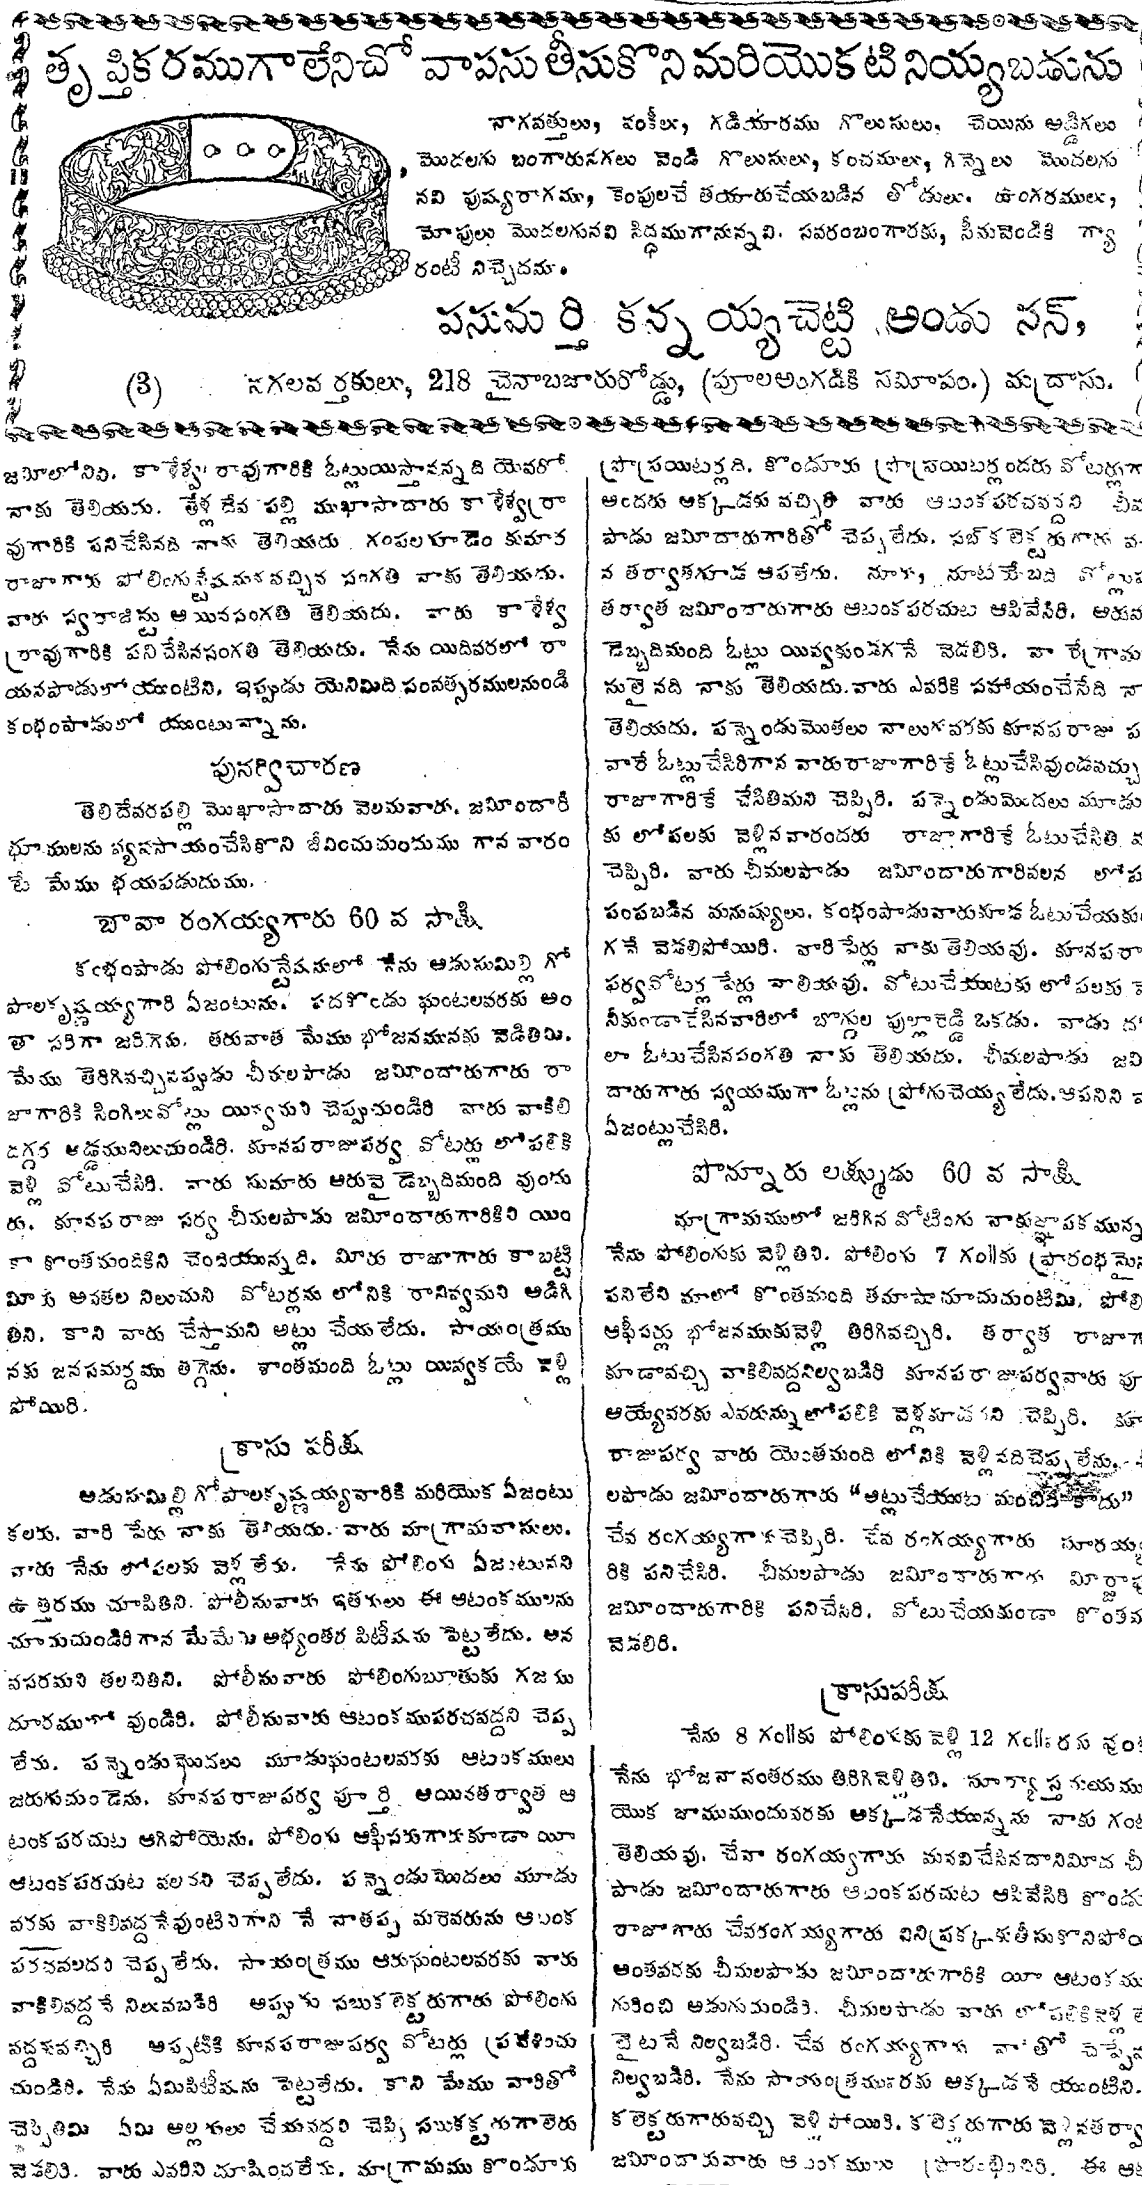 తృప్తికరముగాలేనిచో వాపసుతీసుకొనిమరియొకటినియ్యబడును
నాగవత్తులు, వంకీలు, గడియారము గొలుసులు, చెయిను అడ్డిగలు
మొదలగు బంగారునగలు వెండి గొలుసులు, కంచములు, గిన్నెలు మొదలగు
నవి పుష్యరాగము, కెంపులచే తయారుచేయబడిన తోడులు. ఉంగరములు,
మోపులు మొదలగునవి సిద్ధముగానున్నవి. సవరంబంగారకు, సీమవెండికి గ్యా
రంటీ నిచ్చెదము.
పసుమర్తి కన్నయ్యచెట్టి అండు సన్,
(3) నగలవర్తకులు, 218 చైనాబజారురోడ్డు, (పూలఅంగడికి సమీపం.) మద్రాసు.
జమీలోనివి. కాళేశ్వరరావుగారికి ఓట్లుయిస్తానన్నది యెవరో
నాకు తెలియదు. తేళ్ల దేవపల్లి ముఖాసాదారు కాళేశ్వరరా
వుగారికి పనిచేసినది నాకు తెలియదు. గంపలగూడెం కుమార
రాజాగారు పోలింగుస్టేషనుకువచ్చిన సంగతి నాకు తెలియదు.
వారు స్వరాజిస్టు అయినసంగతి తెలియదు. వారు కాళేశ్వ
రరావుగారికి పనిచేసినసంగతి తెలియదు. నేను యిదివరలో రా
యనపాడులో యుంటిని, ఇప్పుడు యెనిమిది సంవత్సరములనుండి
కంభంపాడులో యుంటున్నాను.
పునర్విచారణ
తెలిదేవరపల్లి మొఖాసాదారు వెలమవారు. జమీందారీ
భూములను వ్యవసాయంచేసికొని జీవించుచుందుము గాన వారం
టే మేము భయపడుదుము.
బావా రంగయ్యగారు 60 వ సాక్షి
కంభంపాడు పోలింగుస్టేషనులో నేను అడుసుమిల్లి గో
పాలకృష్ణయ్యగారి ఏజంటును. పదకొండు ఘంటలవరకు అం
తా సరిగా జరిగెను. తరువాత మేము భోజనమునకు వెడితిమి.
మేము తిరిగివచ్చినప్పుడు చీమలపాడు జమీందారుగారు రా
జాగారికి సింగిలువోట్లు యివ్వమని చెప్పుచుండిరి వారు వాకిలి
దగ్గర అడ్డమునిలుచుండిరి. కూనపరాజుపర్వ వోటర్లు లోపలికి
వెళ్లి వోటుచేసిరి. వారు సుమారు అరువై డెబ్బదిమంది వుందు
రు. కూనపరాజు పర్వ చీమలపాడు జమీందారుగారికిని యిం
కా కొంతమందికిని చెందియున్నది. మీరు రాజాగారు కాబట్టి
మీరు అవతల నిలుచుని వోటర్లను లోనికి రానివ్వమని అడిగి
తిని. కాని వారు చేస్తామని అట్లు చేయలేదు. సాయంత్రము
నకు జనసమర్దము తగ్గెను. శాంతమంది ఓట్లు యివ్వకయే వెళ్లి
పోయిరి.
క్రాసు పరీక్ష
అడుసుమిల్లి గోపాలకృష్ణయ్యవారికి మరియొక ఏజంటు
కలరు. వారి పేరు నాకు తెలియదు. వారు మాగ్రామవాసులు.
వారు నేను లోపలకు వెళ్లలేదు. నేను పోలింగు ఏజంటునని
ఉత్తరము చూపితిని. పోలీసువారు ఇతరులు ఈ ఆటంకములను
చూచుచుండిరిగాన మేమేమి అభ్యంతర పిటీషను పెట్టలేదు. అన
వసరమని తలచితిని. పోలీసువారు పోలింగుబూతుకు గజము
దూరములో వుండిరి. పోలీసువారు ఆటంకముపరచవద్దని చెప్ప
లేదు. పన్నెండుమొదలు మూడుఘంటలవరకు ఆటంకములు
జరుగుచుండెను. కూనపరాజుపర్వ పూర్తి అయినతర్వాత ఆ
టంకపరచుట ఆగిపోయెను. పోలింగు ఆఫీసరుగారుకూడా యీ
ఆటంకపరచుట వలదని చెప్పలేదు. పన్నెండుమొదలు మూడు
వరకు వాకిలివద్దనేవుంటినిగాని నే నాతప్ప మరెవరును ఆటంక
పరచవలదని చెప్పలేదు. సాయంత్రము ఆరుఘంటలవరకు వారు
వాకిలివద్దనే నిలువబడిరి అప్పుడు సబుకలెక్టరుగారు పోలింగు
వద్దకువచ్చిరి అప్పటికి కూనపరాజుపర్వ వోటర్లు ప్రవేశించు
చుండిరి. నేను ఏమిపిటీషను పెట్టలేదు. కాని మేము వారితో
చెప్పితిమి ఏమి అల్లరులు చేయవద్దని చెప్పి సబుకలెక్టరుగారు
వెడలిరి. వారు ఎవరిని దూషించలేదు. మాగ్రామము కొండూరు
ప్రొప్రయిటర్లది. కొండూరు ప్రొప్రయిటర్లందరు వోటర్లుగా
అందరు అక్కడకు వచ్చిరి వారు ఆటంకపరచవద్దని చీమ
పాడు జమీదారుగారితో చెప్పలేదు. సబ్ కలెక్టరుగారు వ
న తర్వాతగూడ ఆపలేదు. నూరు, నూటయేబది వోట్లు
తర్వాత జమీందారుగారు ఆటంకపరచుట ఆపివేసిరి. అరువ
డెబ్బదిమంది ఓట్లు యివ్వకుండగనే వెడలిరి. వా రేగ్రామ
నులైనది నాకు తెలియదు. వారు ఎవరికి సహాయంచేసేది నా
తెలియదు. పన్నెండుమొతలు నాలుగువరకు కూనపరాజు ప
వారే ఓట్లుచేసిరిగాన వారురాజాగారికే ఓట్లుచేసివుండవచ్చు
రాజాగారికే చేసితిమని చెప్పిరి. పన్నెండుమొదలు మూడు
కు లోపలకు వెళ్లినవారందరు రాజాగారికే ఓటుచేసితి మ
చెప్పిరి. వారు చీమలపాడు జమీందారుగారివలన లోప
పంపబడిన మనుష్యులు. కంభంపాడువారుకూడ ఓటుచేయకుం
గనే వెడలిపోయిరి. వారిపేర్లు నాకుతెలియవు. కూనపరా
పర్వవోటర్ల పేర్లు నాలియవు. వోటుచేయుటకు లోపలకు వె
నీకుండాచేసినవారిలో బొగ్గుల పుల్లారెడ్డి ఒకడు. వాడు నా
లా ఓటుచేసినసంగతి నాకు తెలియదు. చీమలపాడు జమీ
దారుగారు స్వయముగా ఓట్లను ప్రోగుచెయ్యలేదు. ఆపనిని వ
ఏజంట్లుచేసిరి.
పొన్నూరు లక్ష్ముడు 60 వ సాక్షి
మాగ్రామములో జరిగిన వోటింగు నాకుజ్ఞాపకమున్న
నేను పోలింగుకు వెళ్లితిని. పోలింగు 7 గంలకు ప్రారంభమైన
పనిలేని మాలో కొంతమంది తమాషాచూచుచుంటిమి. పోలి
ఆఫీసర్లు భోజనముకువెళ్లి తిరిగివచ్చిరి. తర్వాత రాజాగా
కూడావచ్చి వాకిలివద్దనిల్వబడిరి కూనపరాజుపర్వవారు పూ
అయ్యేవరకు ఎవరున్నులోపలికి వెళ్లకూడదని చెప్పిరి. కూ
రాజుపర్వ వారు యెంతమంది లోనికి వెళ్లినదిచెప్పలేను. చీ
లపాడు జమీందారుగారు "అట్లుచేయుట మంచిది కాదు"
చేవ రంగయ్యగారుచెప్పిరి. చేవ రంగయ్యగారు సూరయ్య
రికి పనిచేసిరి. చీమలపాడు జమీందారుగారు మీర్జాపు
జమీందారుగారికి పనిచేసిరి. వోటుచేయకుండా కొంతమ
వెడలిరి.
క్రాసుపరీక్ష
నేను 8 గంలకు పోలింగుకు వెళ్లి 12 గంలవరకు వుంటి
నేను భోజనానంతరము తిరిగివెళ్లితిని. సూర్యాస్తమయము
యొక జాముముందువరకు అక్కడనేయున్నను నాకు గంట
తెలియవు. చేవా రంగయ్యగారు మనవిచేసినదానిమీద చీ
పాడు జమీందారుగారు ఆటంకపరచుట ఆపివేసిరి కొండు
రాజాగారు చేవరంగయ్యగారు విని ప్రక్కకుతీసుకొనిపోయి
అంతవరకు చీమలపాడు జమీందారుగారికి యీ ఆటంకము
గురించి అడుగుచుండిరి. చీమలపాడు వారు లోపలికివెళ్లలే
బైటనే నిల్వబడిరి. చేవ రంగయ్యగారు నాతో చెప్పెను
నిల్వబడిరి. నేను సాయంత్రమువరకు అక్కడనే యుంటిని.
కలెక్టరుగారువచ్చి వెళ్లిపోయిరి. కలెక్టరుగారు వెళ్లినతర్వా
జమీందారువారు ఆటంకములు ప్రారంభించిరి. ఈ ఆట